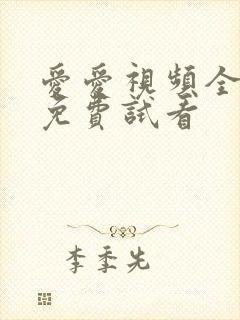 愛愛視頻全
免費試看
李季先